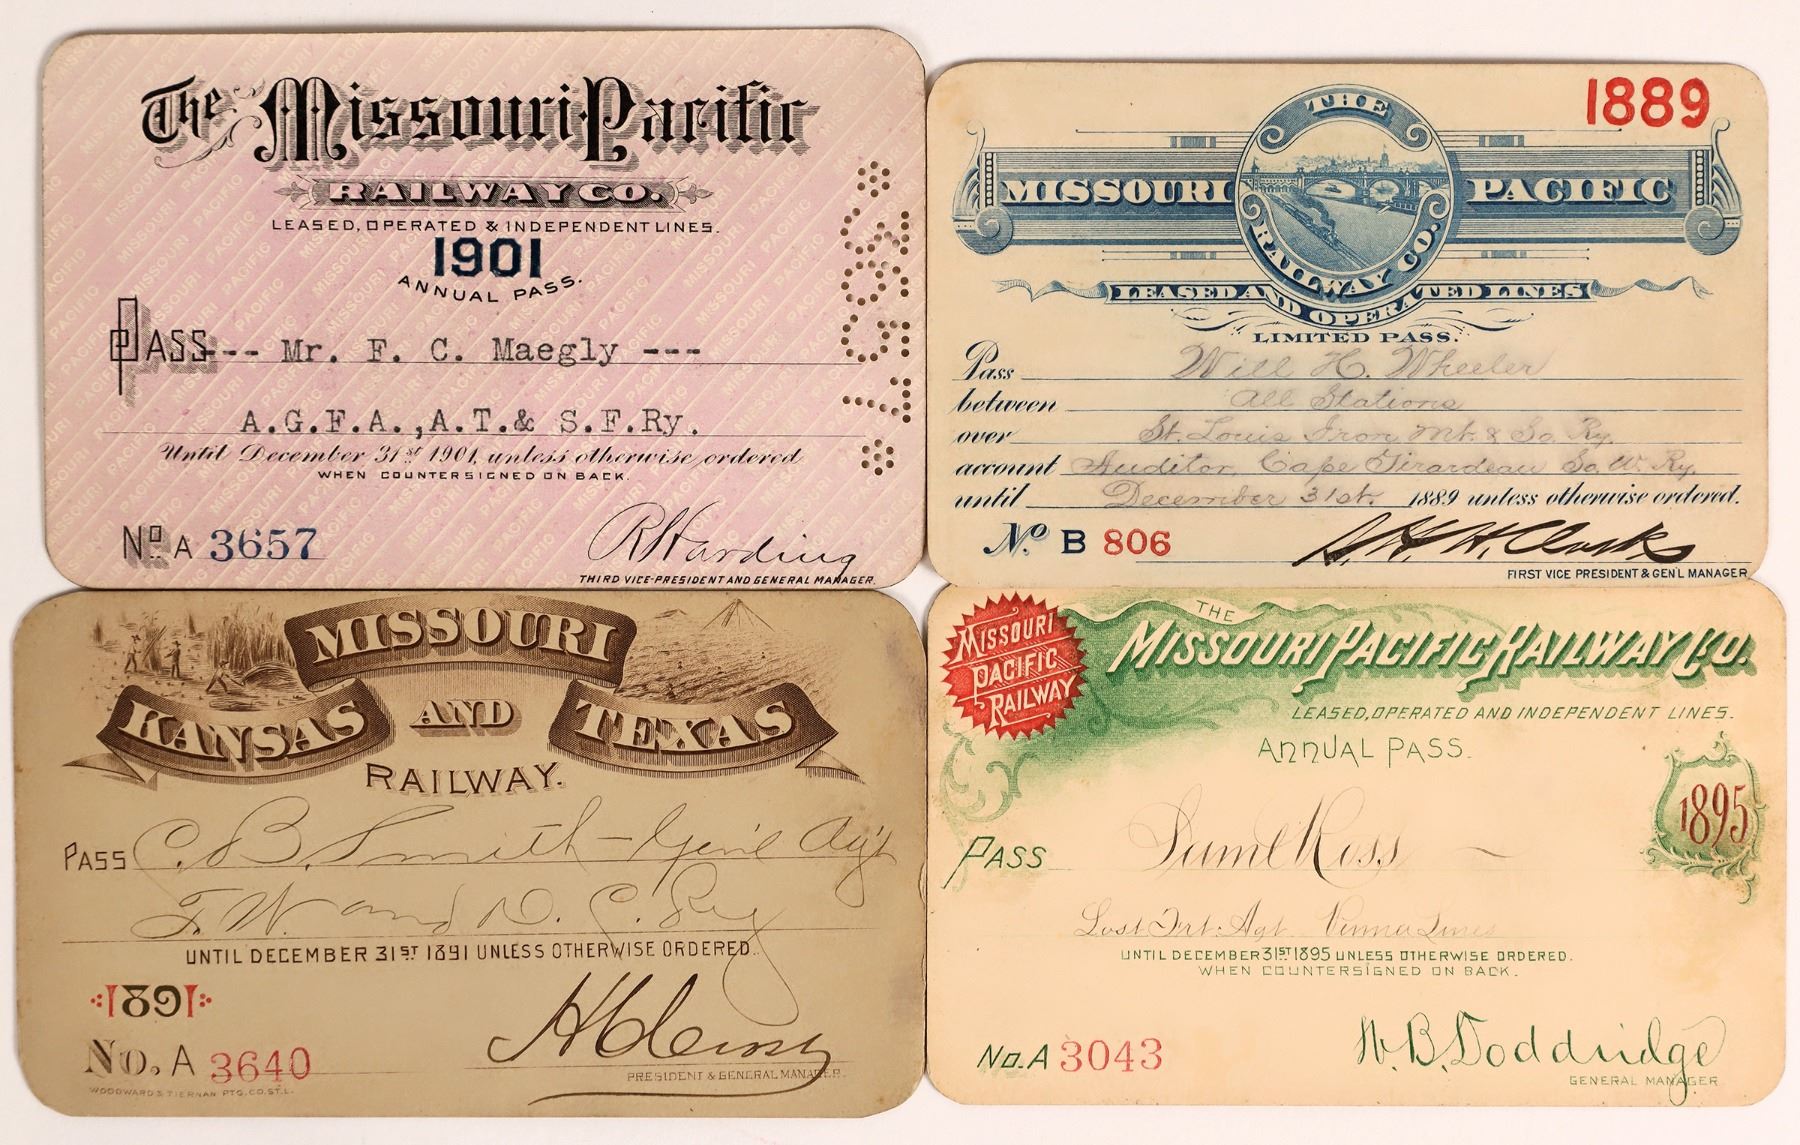 The Missouri Pacific
RAILWAY CO.
LEASED, OPERATED & INDEPENDENT LINES.
1901
ANNUAL PASS.
PASS --- Mr. F. C. Maegly ---
A.G.F.A.,A.T.& S.F.Ry.
Until December 31st 1901, unless otherwise ordered
WHEN COUNTERSIGNED ON BACK.
No. A 3657
R Harding
THIRD VICE-PRESIDENT AND GENERAL MANAGER.
1889
THE
MISSOURI PACIFIC
RAILWAY CO.
LEASED AND OPERATED LINES
LIMITED PASS.
Pass Will H. Wheeler
between All Stations
over St. Louis Iron Mt. & So. Ry.
account Auditor, Cape Girardeau So. W. Ry.
until December 31st. 1889 unless otherwise ordered.
No. B 806
FIRST VICE PRESIDENT & GEN'L MANAGER
MISSOURI
KANSAS AND TEXAS
RAILWAY.
PASS C. B. Smith - Gen'l Ag't
F. W. and D. C. Ry
UNTIL DECEMBER 31ST 1891 UNLESS OTHERWISE ORDERED.
1891
No. A 3640
PRESIDENT & GENERAL MANAGER.
WOODWARD & TIERNAN PTG. CO. ST. L.
MISSOURI
PACIFIC
RAILWAY
THE
MISSOURI PACIFIC RAILWAY CO.
LEASED, OPERATED AND INDEPENDENT LINES.
ANNUAL PASS.
1895
PASS Saml Ross
Frt. Agt. Lines
UNTIL DECEMBER 31ST 1895 UNLESS OTHERWISE ORDERED.
WHEN COUNTERSIGNED ON BACK.
No. A 3043
W. B. Doddridge
GENERAL MANAGER